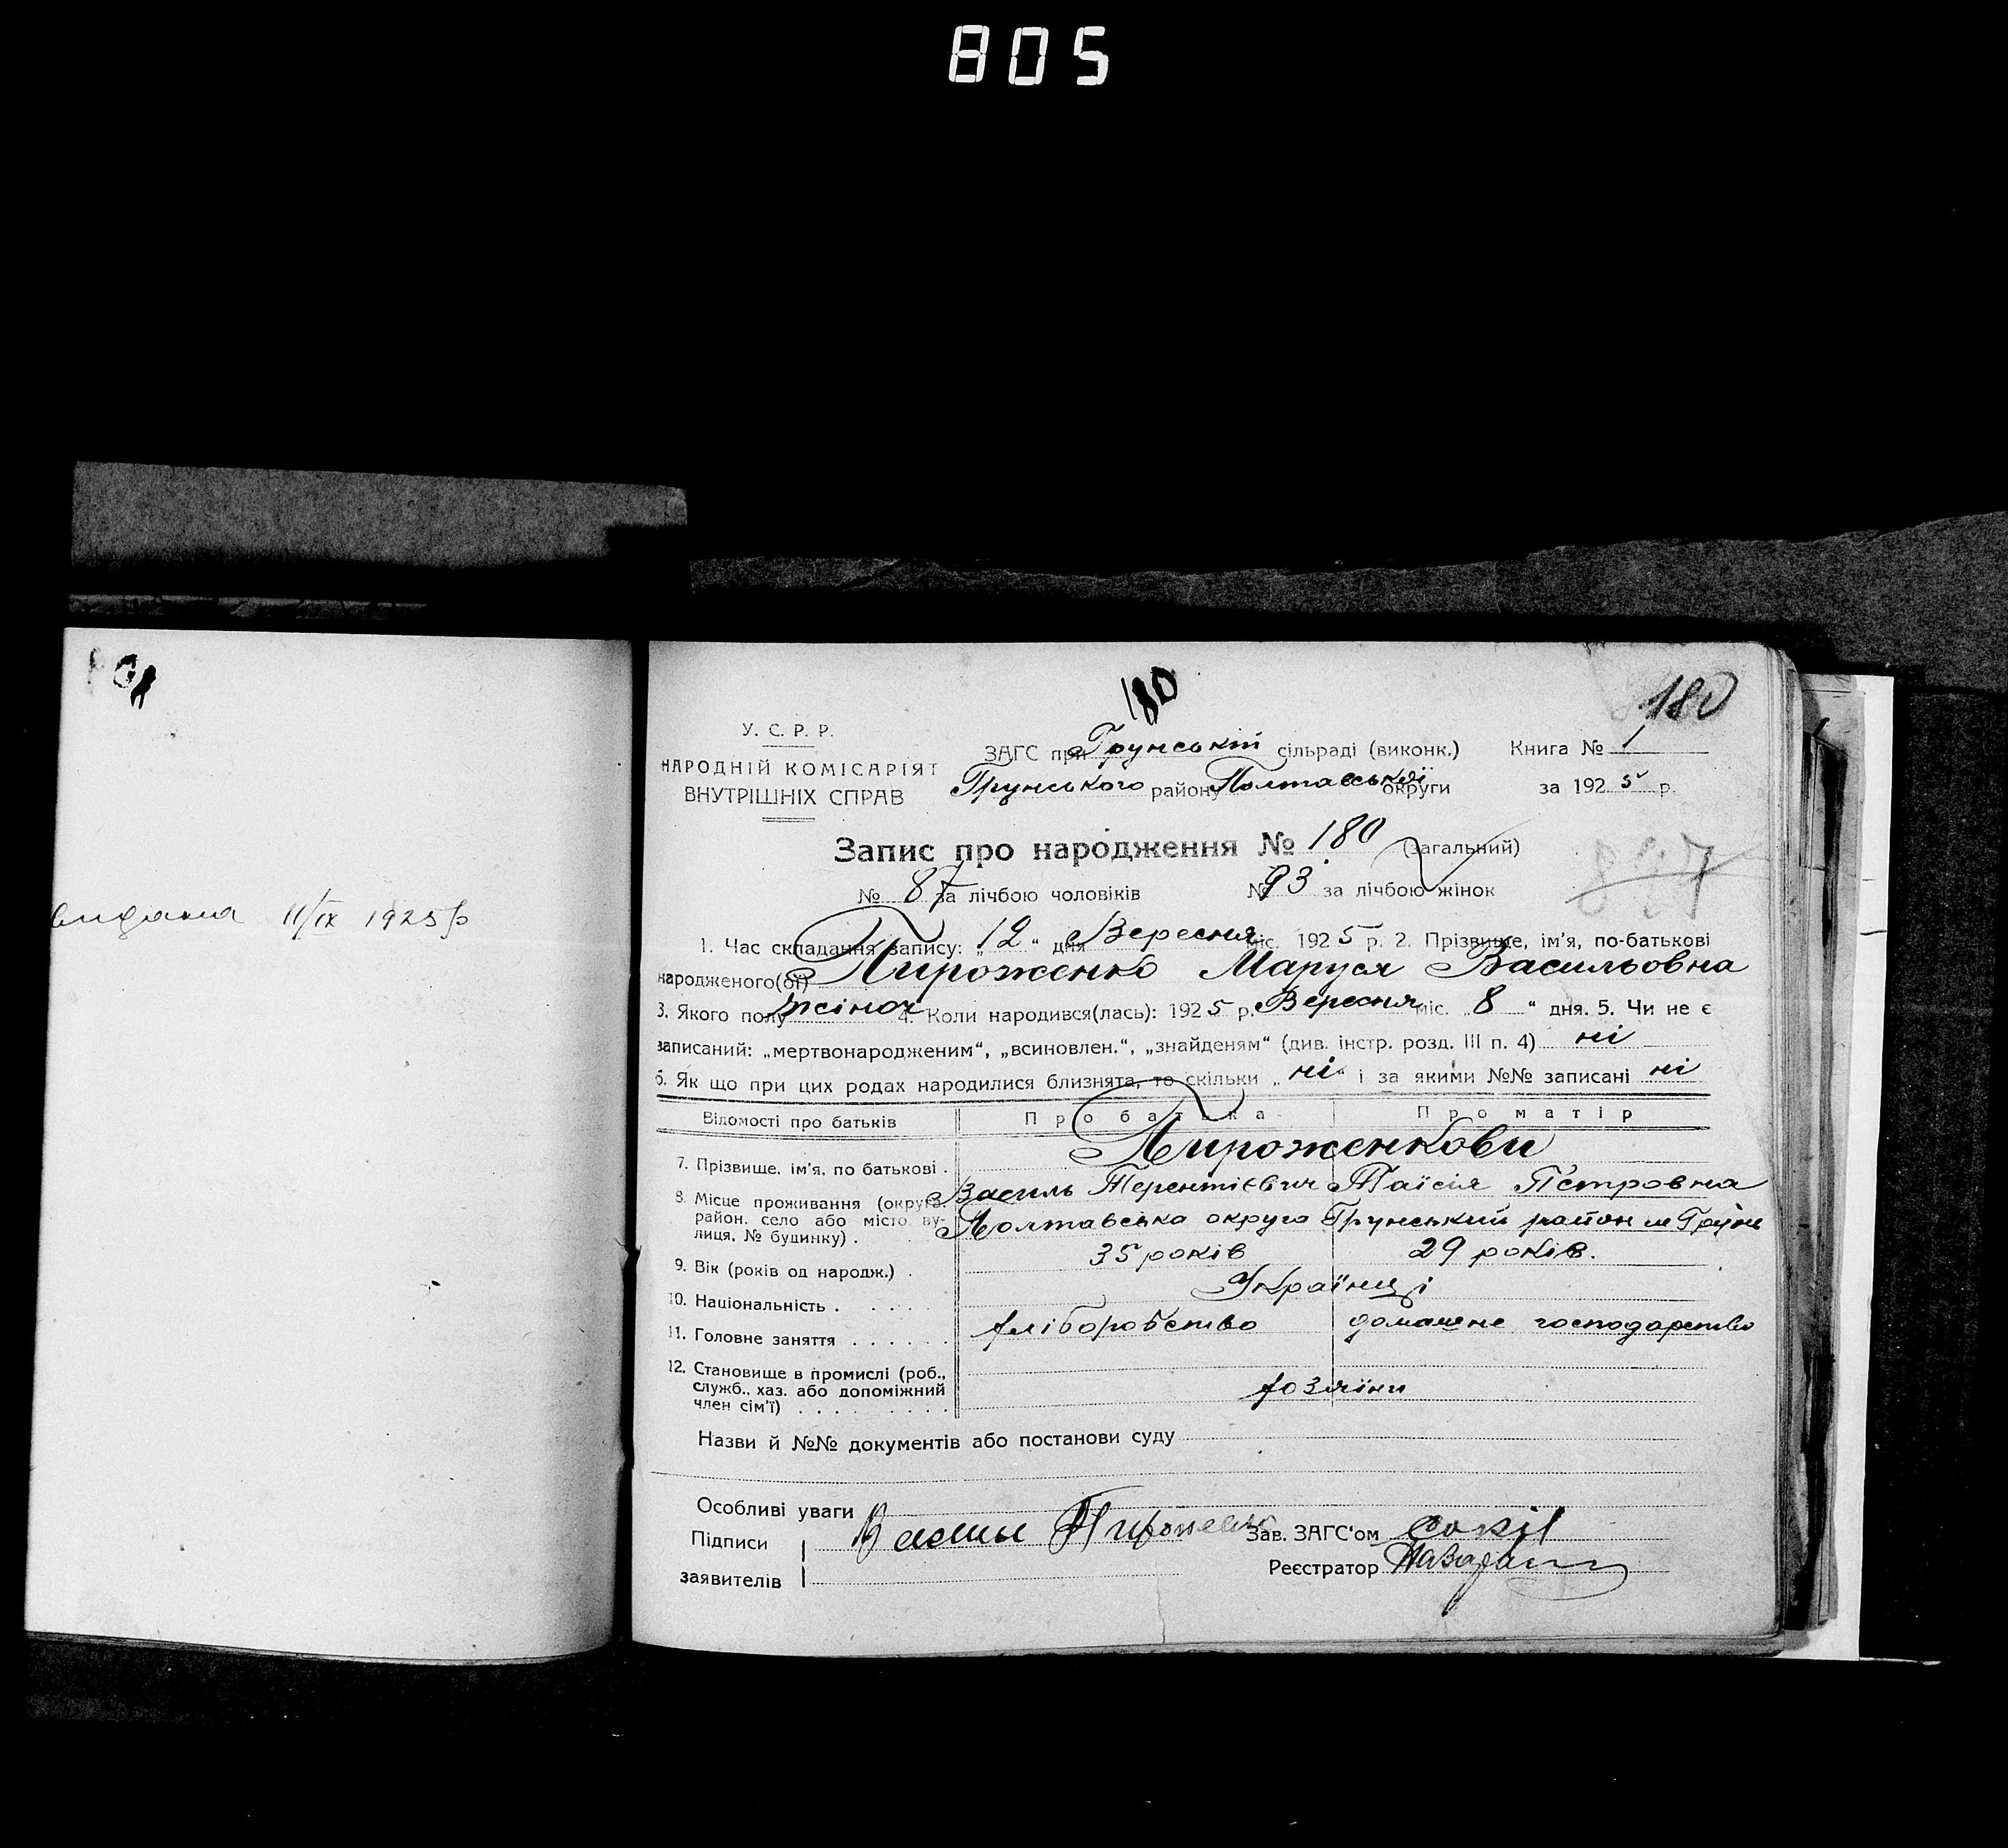 805
видана 11/IX 1925 р
180
180
У. С. Р. Р.
НАРОДНІЙ КОМІСАРІЯТ
ВНУТРІШНІХ СПРАВ
ЗАГС при Грунській сільраді (виконк.) Книга № 1
Грунського району Полтавської округи за 1925 р.
Запис про народження № 180 (загальний)
№ 87 за лічбою чоловіків № 93 за лічбою жінок
847
1. Час складання запису: „12“ дня Вересня міс. 1925 р. 2. Прізвище, ім'я, по-батькові
народженого(ої) Пироженко Маруся Васильовна
3. Якого полу жіноч 4. Коли народився(лась): 1925 р. Вересня міс. „8“ дня. 5. Чи не є
записаний: „мертвонародженим“, „всиновлен.“, „знайденям“ (див. інстр. розд. III п. 4) ні
6. Як що при цих родах народилися близнята, то скільки „ні“ і за якими №№ записані ні
Відомості про батьків Про батька Про матір
Пироженкови
7. Прізвище, ім'я, по батькові .
Василь Терентієвич Таїсія Петровна
8. Місце проживання (округа, район, село або місто, вулиця, № будинку) .
Полтавська округа Грунський район м Грунь
9. Вік (років од народж.) . 35 років 29 років.
10. Національність . Українці
11. Головне заняття . хліборобство домашне господарство
12. Становище в промислі (роб.,
служб., хаз. або допоміжний
член сім'ї) . хозяїни
Назви й №№ документів або постанови суду
Особливі уваги
Підписи
заявителів
Василь Пироженко
Зав. ЗАГС'ом Сокіл
Реєстратор